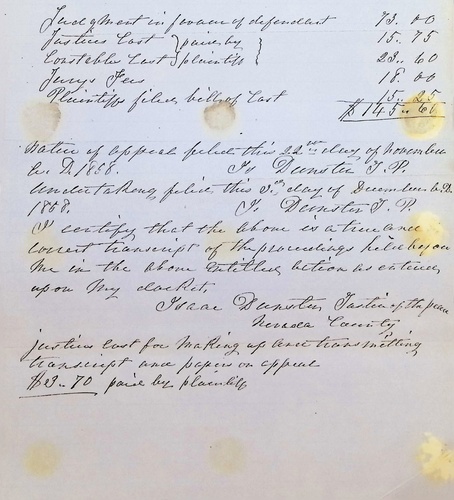 Judgment in favour of defendant 73.. 00
Justices Cost } paid by } 15.. 75
Constables Cost } plaintiff } 23.. 60
Jurys Fees 18 00
Plaintiffs filed bill of Cost 15.. 25
$ 145.. 60
Notice of appeal filed this 22nd day of November
A. D. 1858. Is Dunster J. P.
Undertaking filed this 3rd day of December A. D.
1858. Is Dunster J. P.
I certify that the above is a true and
correct transcript of the proceedings held before
me in the above entitled action as entered
upon my docket
Isaac Dunster Justice of the peace
Nevada County
justices cost for making up and transmitting
transcript and papers on appeal
$3.. 70 paid by plaintiff